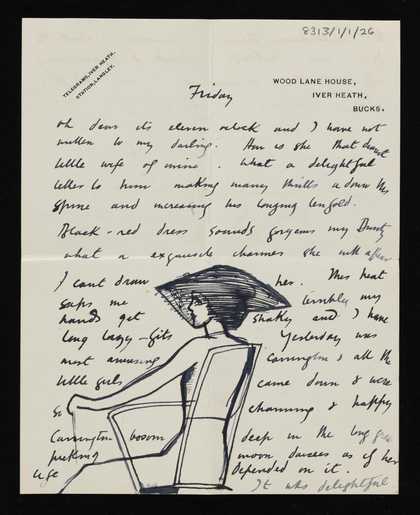 8313/1/1/26
TELEGRAMS, IVER HEATH.
STATION, LANGLEY.
WOOD LANE HOUSE,
IVER HEATH,
BUCKS.
Friday
oh dear its eleven o'clock and I have not
written to my darling. How is she that
little wife of mine. What a delightful
letter to him making many thrills adown his
spine and increasing his longing tenfold.
Black-red dress sounds gorgeous my Dusty
what a exquisite charmer she will
I cant draw her. This heat
saps me terribly my
hands get shaky and I have
long lazy-fits Yesterday was
most amusing Carrington & all the
little girls came down & were
so charming & happy
Carrington bosom deep in the long
picking moon daisies as if her
life depended on it.
It was delightful